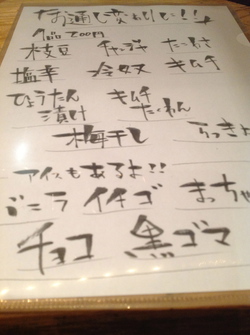 お通し変わりに!!
1品200円
枝豆 チャンヂャ たこわさ
塩辛 冷奴 キムチ
ひょうたん漬け キムチたくわん
梅干し らっきょ
アイスもあるよ!!
バニラ イチゴ まっちゃ
チョコ 黒ゴマ